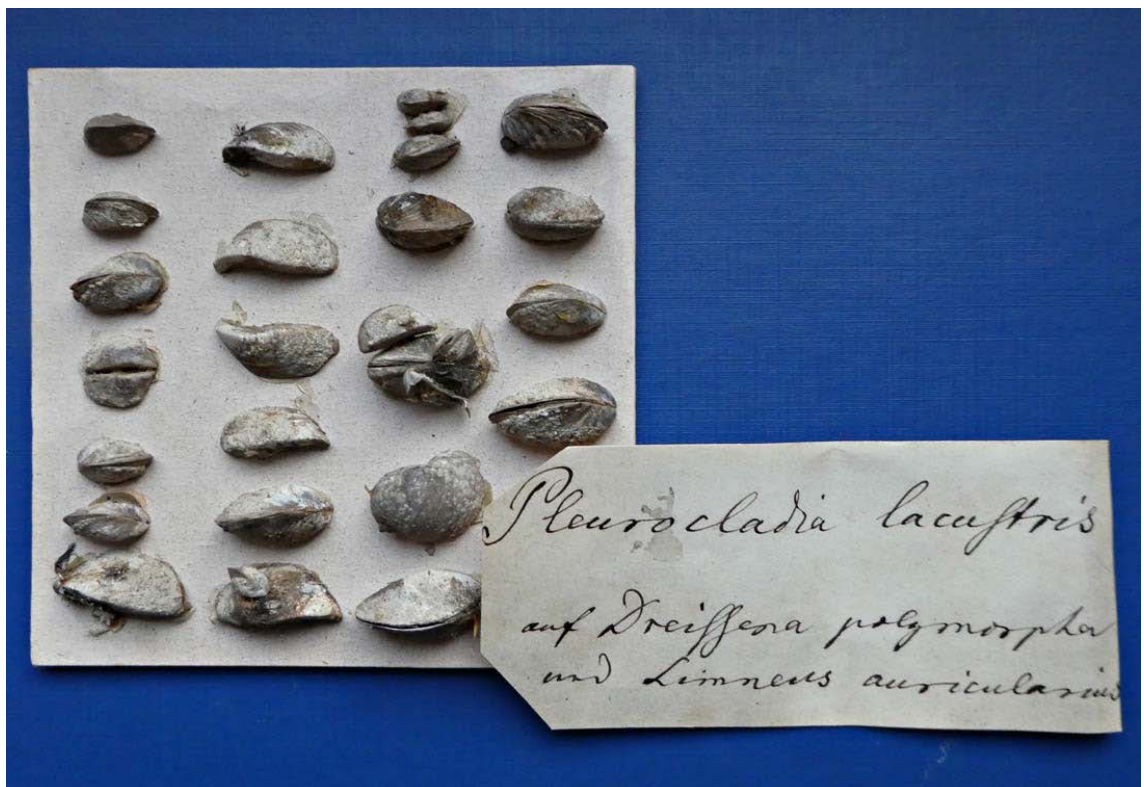 Pleurocladia lacuſtris
auf Dreiſſena polymorpha
und Limneus auricularius